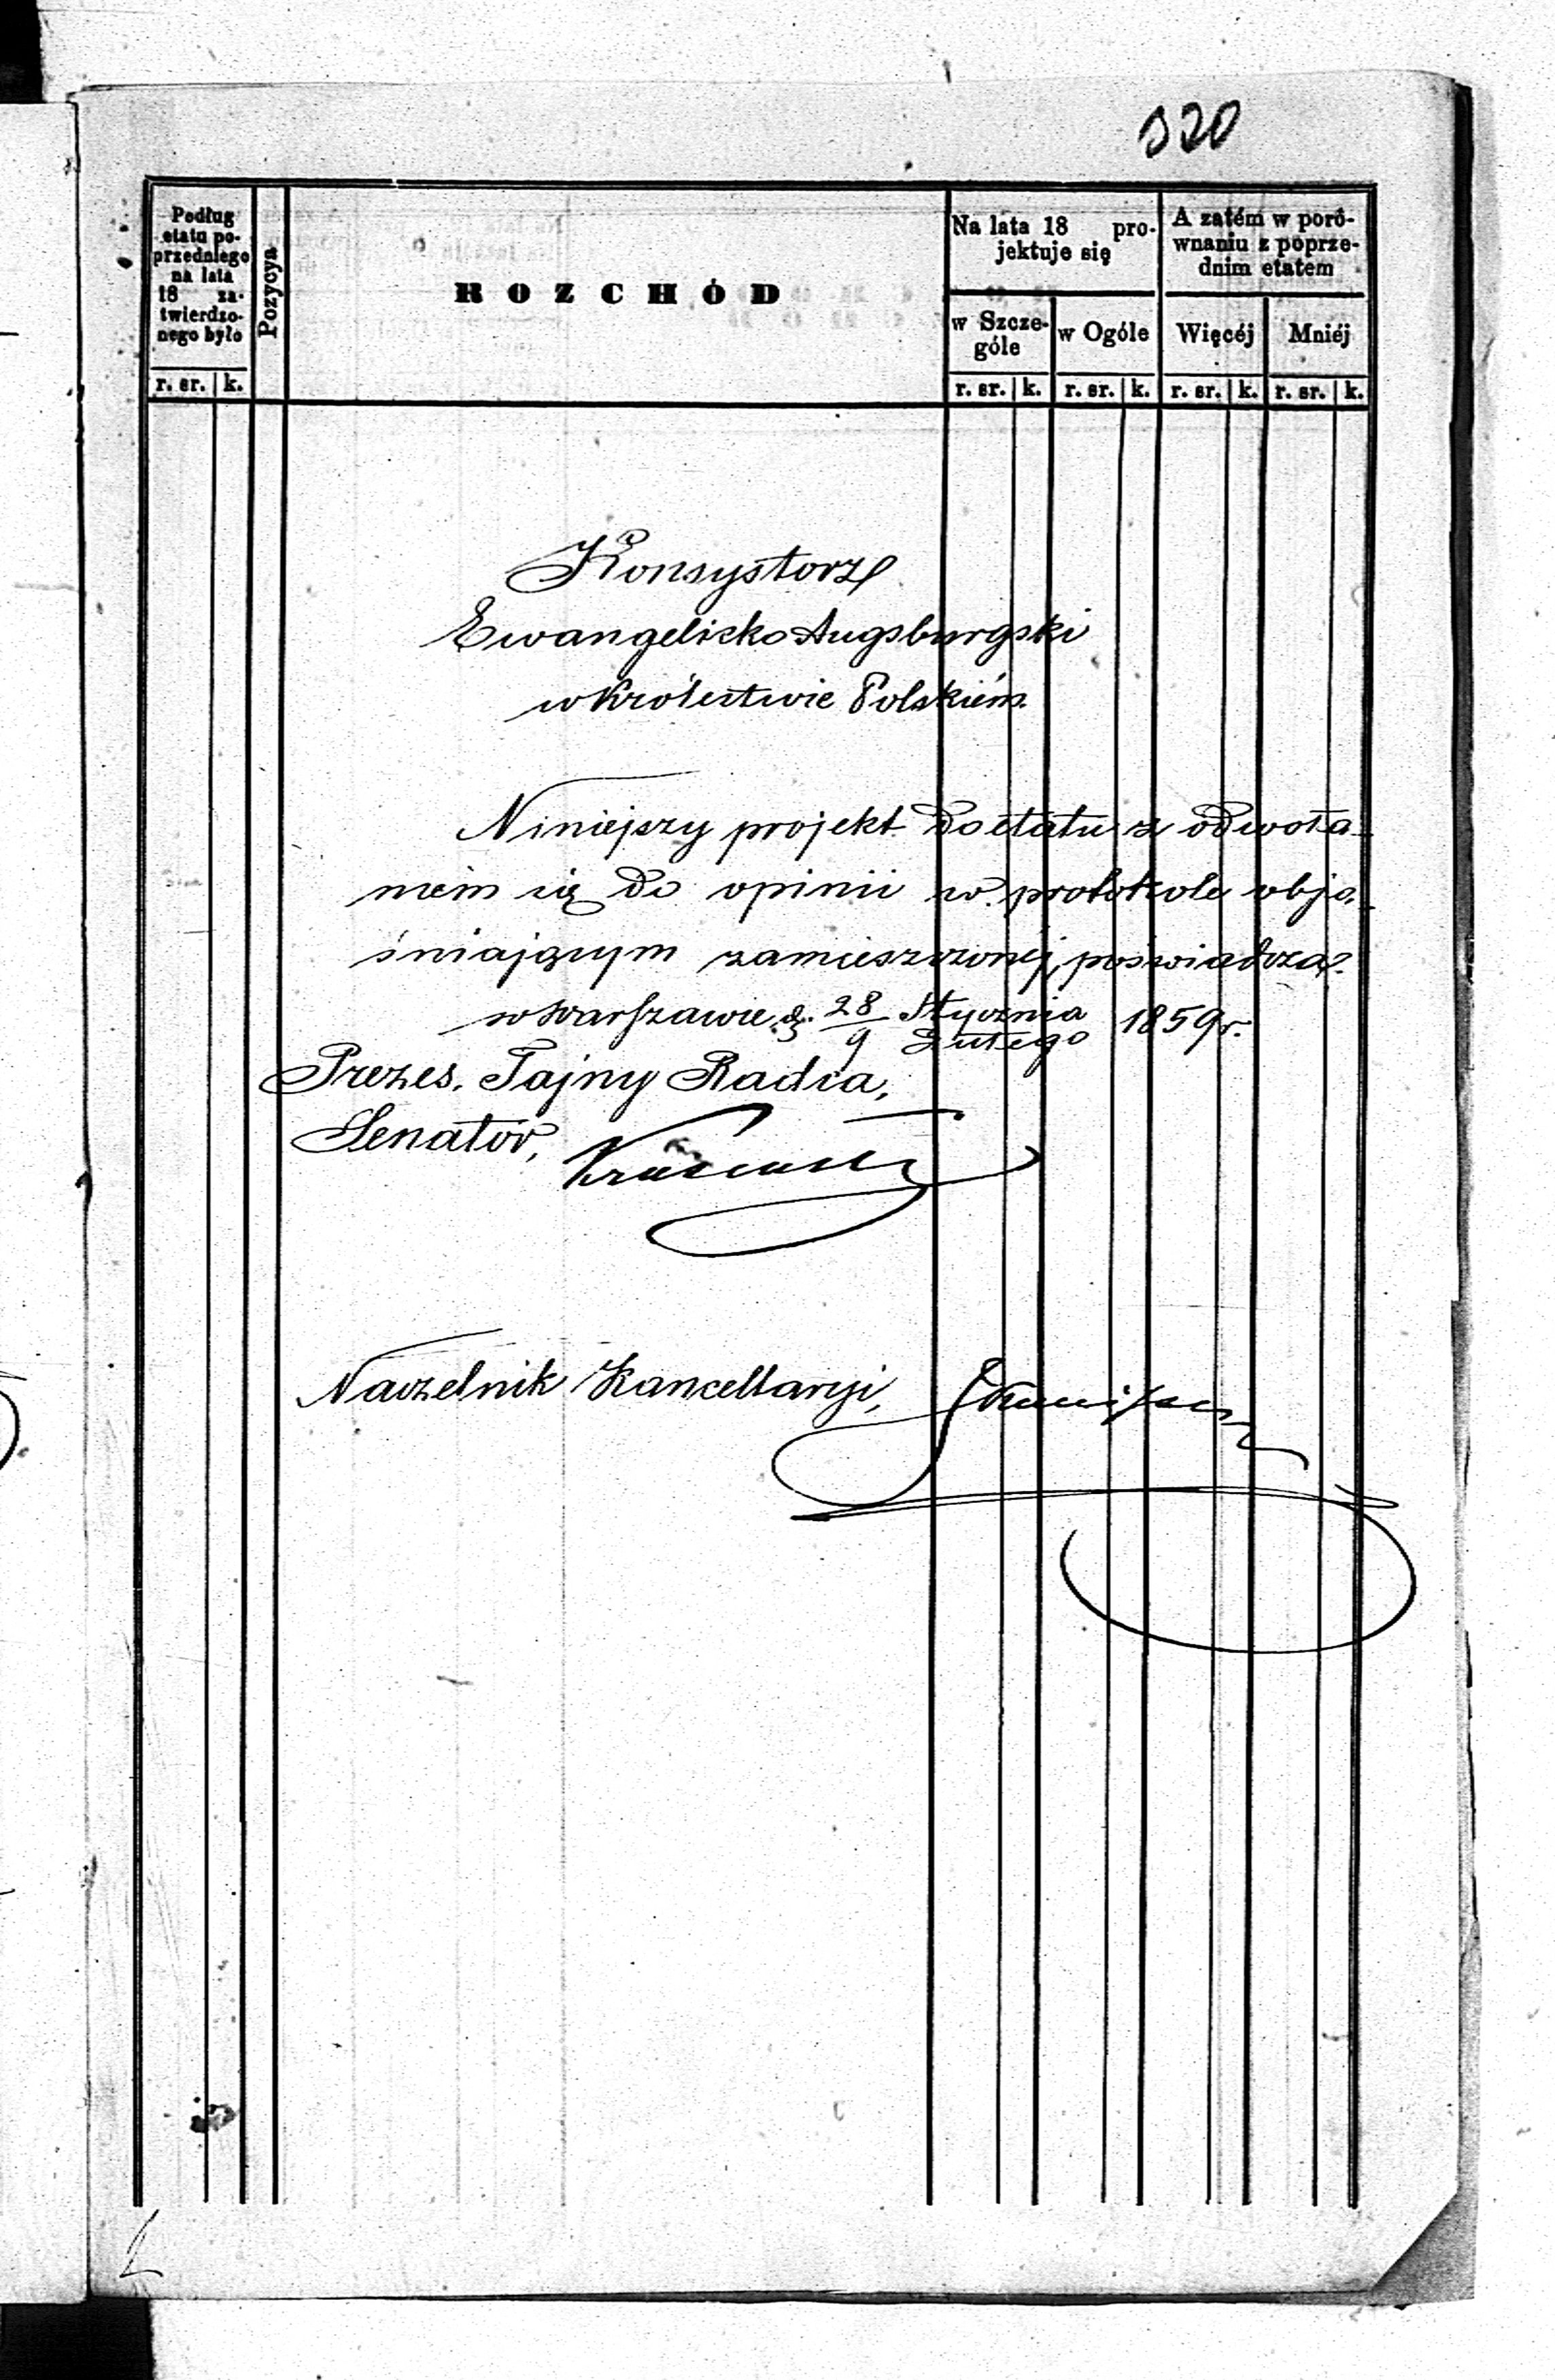 320
Podług
etatu po-
przedniego
na lata
18 za-
twierdzo-
nego było
r. sr. k.
Pozycya
ROZCHÓD
Na lata 18 pro-
jektuje się
w Szcze-
góle
r. sr. k.
w Ogóle
r. sr. k.
A zatém w poró-
wnaniu z poprze-
dnim etatem
Więcéj
r. sr. k.
Mniéj
r. sr. k.
Konsystorz
Ewangelicko Augsburgski
w Królestwie Polskiém.
Niniejszy projekt do etatu z odwoła-
niem się do opinii w protokole obja-
śniającym zamieszczonej, poświadcza.
w Warszawie d. 28/9 Stycznia/Lutego 1859 r.
Prezes, Tajny Radca,
Senator,
Naczelnik Kancellaryi,